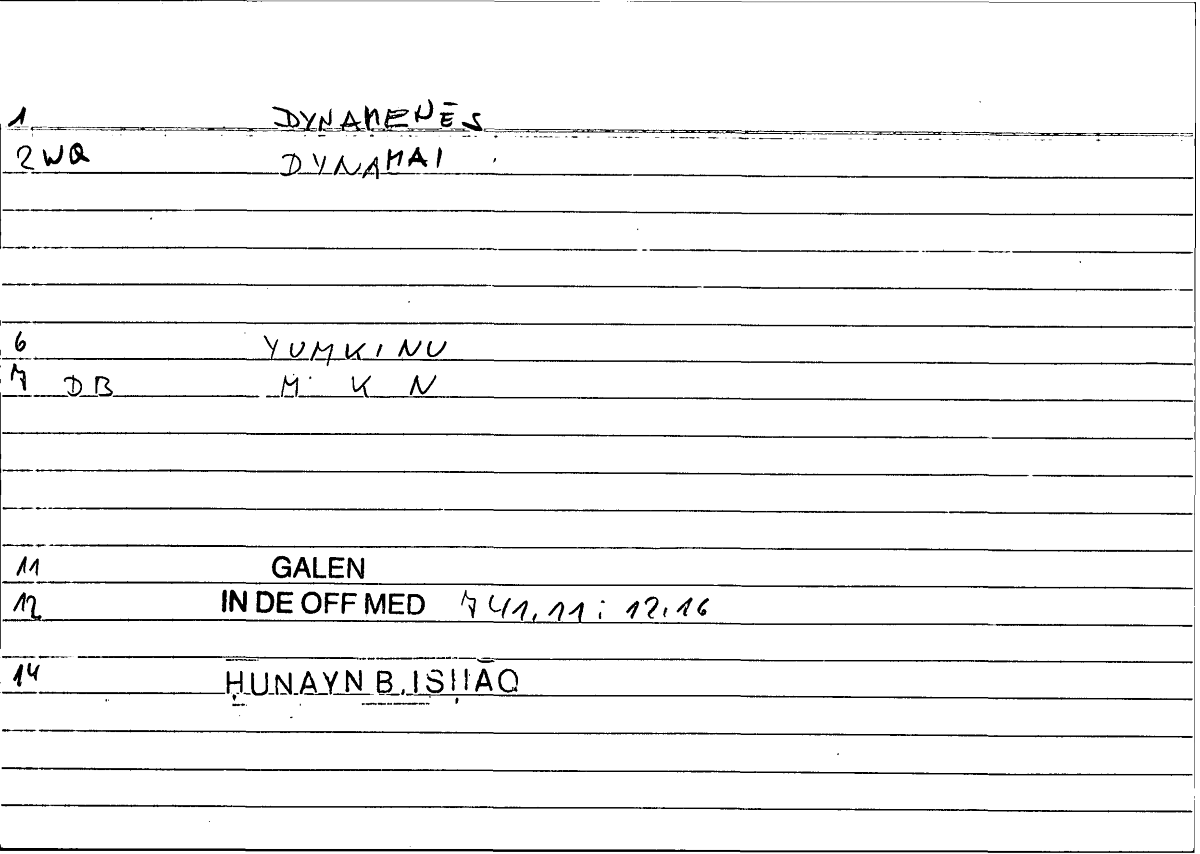 1 DYNAMENĒS
2WQ DYNAMAI
6 YUMKINU
7 DB M K N
11 GALEN
12 IN DE OFF MED 741,11 ; 12,16
14 ḤUNAYN B. ISḤĀQ